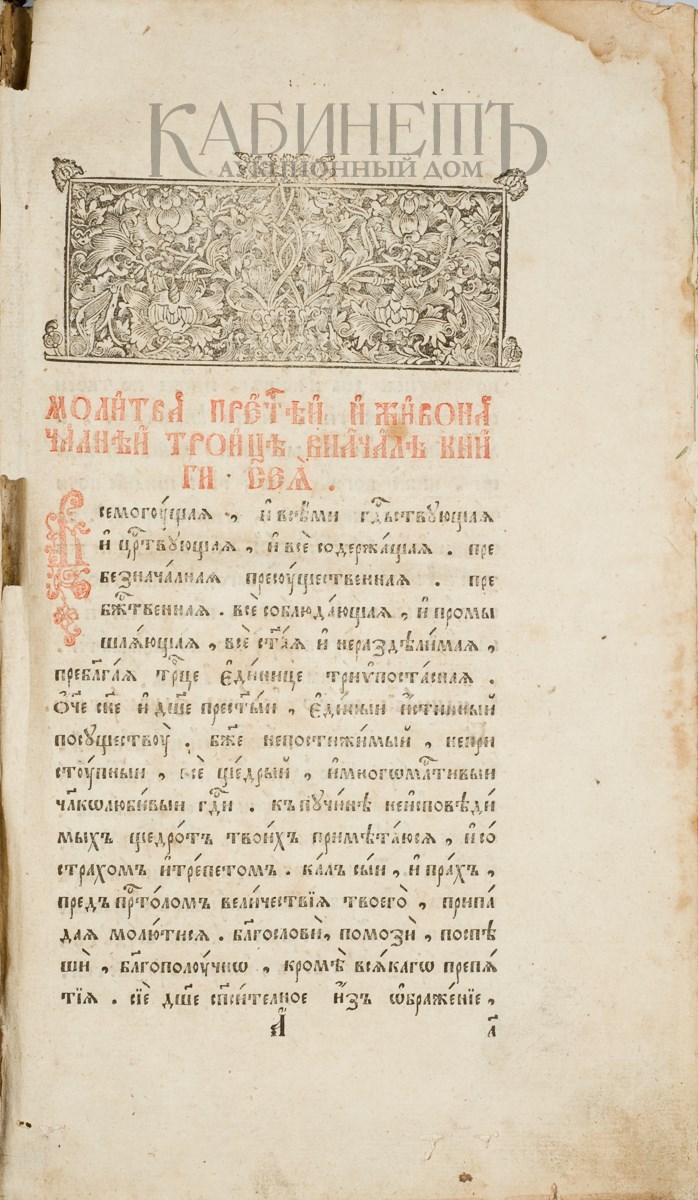 КАБИНЕТЪ
АУКЦИОННЫЙ ДОМ
МОЛИ́ТВА ПРЕС҃ТѢЙ И҆ ЖИ́ВОНА
ЧА́ЛНѢЙ ТРО́ИЦѢ ВНАЧА́ЛѢ КНИ́
ГИ · СЕЯ̀ .
семогꙋ́щая , и҆ всѣ́ми гдⷭ҇ьствꙋющая
и҆ црⷭ҇твꙋ́ющая , и҆ всѐ содержа́щая . пре
безнача́лная пресꙋ́щественная . пре
бжⷭ҇твенная . всѐ соблюда́ющая , и҆ промы
шля́ющая , всѐ ст҃а́я и҆ нераздѣли́мая ,
пребл҃га́я трⷪ҇це є҆ди́нице триѵпоста́сная .
ѻ҆́ч҃е сн҃е и҆ дш҃е прест҃ы́и , є҆ди́ный и҆́стинный
посꙋществꙋ̀ . бж҃е непостижи́мый , непри
стꙋ́пныи , всѐ ще́дрый , и҆многомлⷭ҇тивыи
чл҃колюби́выи гдⷭ҇и . къпꙋчи́нѣ неисповѣди́
мыхъ щедро́тъ твои́хъ примѣта́юся , и҆ со
страхомъ и҆тре́петомъ . ка́лъ сы́и , и҆ пра́хъ ,
предъ прⷭ҇то́ломъ вели́чествїѧ твоегѡ̀ , припа́
дая молю́тися . бл҃гослови̇̀ , помозѝ , поспѣ
шѝ , бл҃гополꙋ́чнѡ , кромѣ̀ вся́кагѡ препя́
тїя . сїѐ дш҃е сп҃си́телное и҆зъ ѡ҆браже́нїе ,
А҃